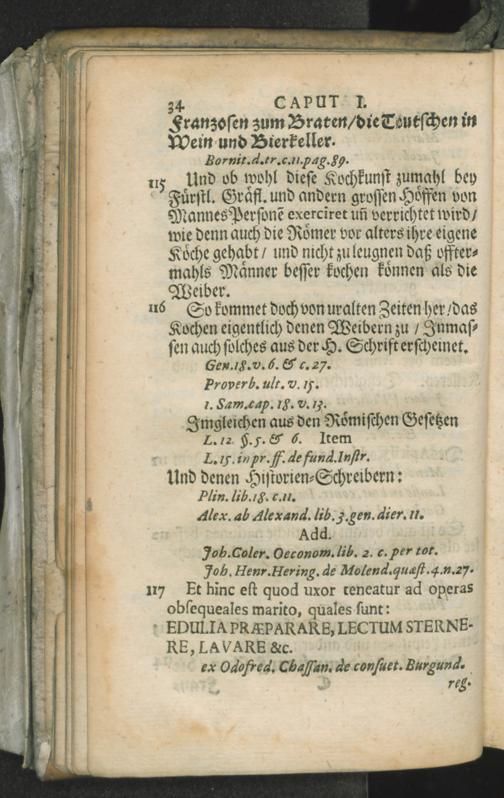 34 CAPUT I.
Franzosen zum Braten/die Teutschen in
Wein und Bierkeller.
Bornit.d.tr.c.11.pag.89.
115 Und ob wohl diese Kochkunst zumahl bey
Fürstl. Gräfl. und andern grossen Höffen von
MannesPersonē exerciret uñ verrichtet wird/
wie denn auch die Römer vor alters ihre eigene
Köche gehabt/ und nicht zu leugnen daß offter-
mahls Männer besser kochen können als die
Weiber.
116 So kommet doch von uralten Zeiten her/das
Kochen eigentlich denen Weibern zu / Inmas-
sen auch solches aus der H. Schrift erscheinet.
Gen.18.v.6. & c.27.
Proverb. ult. v. 15.
1. Sam.cap. 18. v. 13.
Imgleichen aus den Römischen Gesetzen
L. 12. §. 5. & 6. Item
L. 15. in pr. ff. de fund. Instr.
Und denen Historien-Schreibern:
Plin. lib. 18. c. 11.
Alex. ab Alexand. lib. 3. gen. dier. 11.
Add.
Joh. Coler. Oeconom. lib. 2. c. per tot.
Joh. Henr. Hering. de Molend. quæst. 4. n. 27.
117 Et hinc est quod uxor teneatur ad operas
obsequeales marito, quales sunt:
EDULIA PRÆPARARE, LECTUM STERNE-
RE, LAVARE &c.
ex Odofred. Chassan. de consuet. Burgund.
reg.